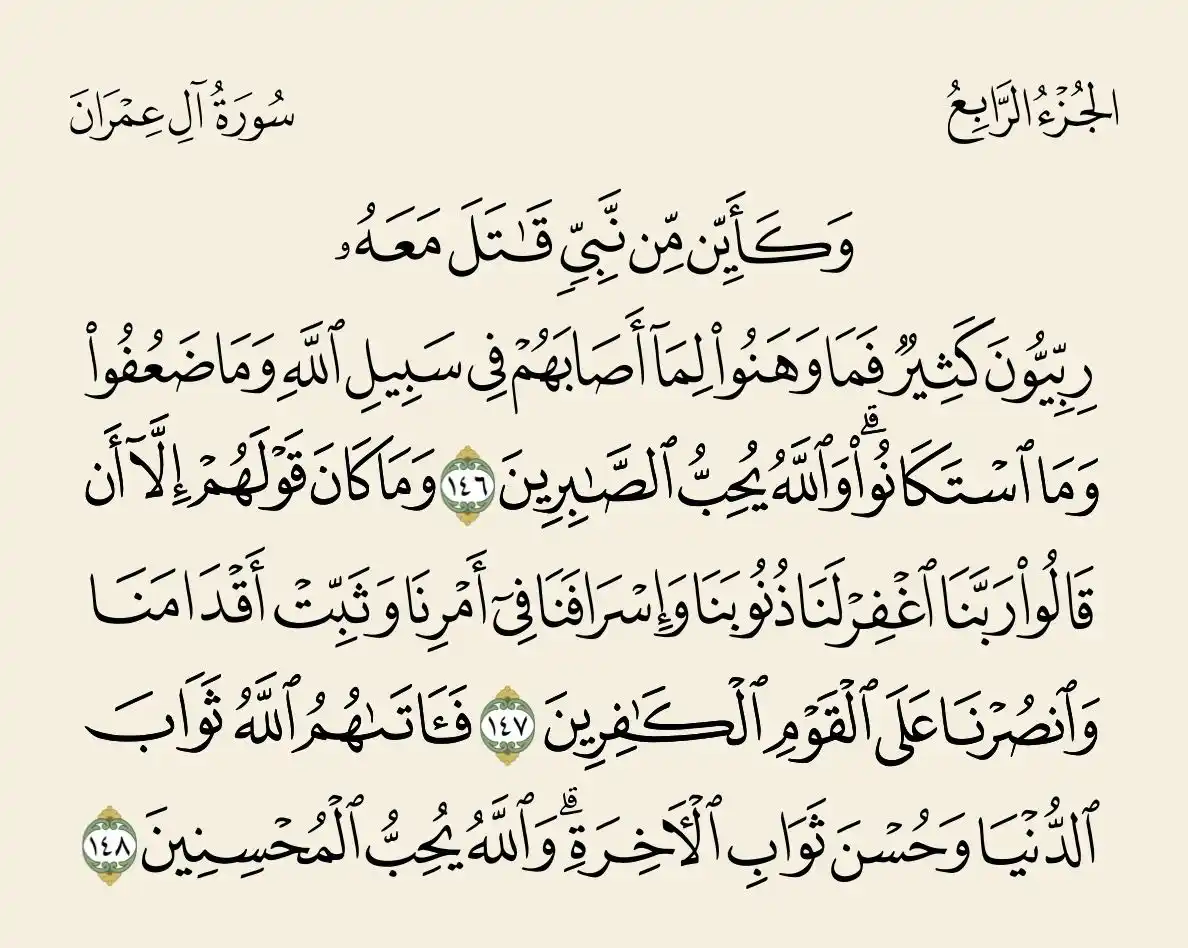 الجُزْءُ الرَّابِعُ
سُورَةُ آلِ عِمْرَانَ
وَكَأَيِّن مِّن نَّبِيٍّ قَٰتَلَ مَعَهُۥ
رِبِّيُّونَ كَثِيرٌ فَمَا وَهَنُوا۟ لِمَآ أَصَابَهُمْ فِى سَبِيلِ ٱللَّهِ وَمَا ضَعُفُوا۟
وَمَا ٱسْتَكَانُوا۟ ۗ وَٱللَّهُ يُحِبُّ ٱلصَّٰبِرِينَ ١٤٦ وَمَا كَانَ قَوْلَهُمْ إِلَّآ أَن
قَالُوا۟ رَبَّنَا ٱغْفِرْ لَنَا ذُنُوبَنَا وَإِسْرَافَنَا فِىٓ أَمْرِنَا وَثَبِّتْ أَقْدَامَنَا
وَٱنصُرْنَا عَلَى ٱلْقَوْمِ ٱلْكَٰفِرِينَ ١٤٧ فَـَٔاتَىٰهُمُ ٱللَّهُ ثَوَابَ
ٱلدُّنْيَا وَحُسْنَ ثَوَابِ ٱلْءَاخِرَةِ ۗ وَٱللَّهُ يُحِبُّ ٱلْمُحْسِنِينَ ١٤٨